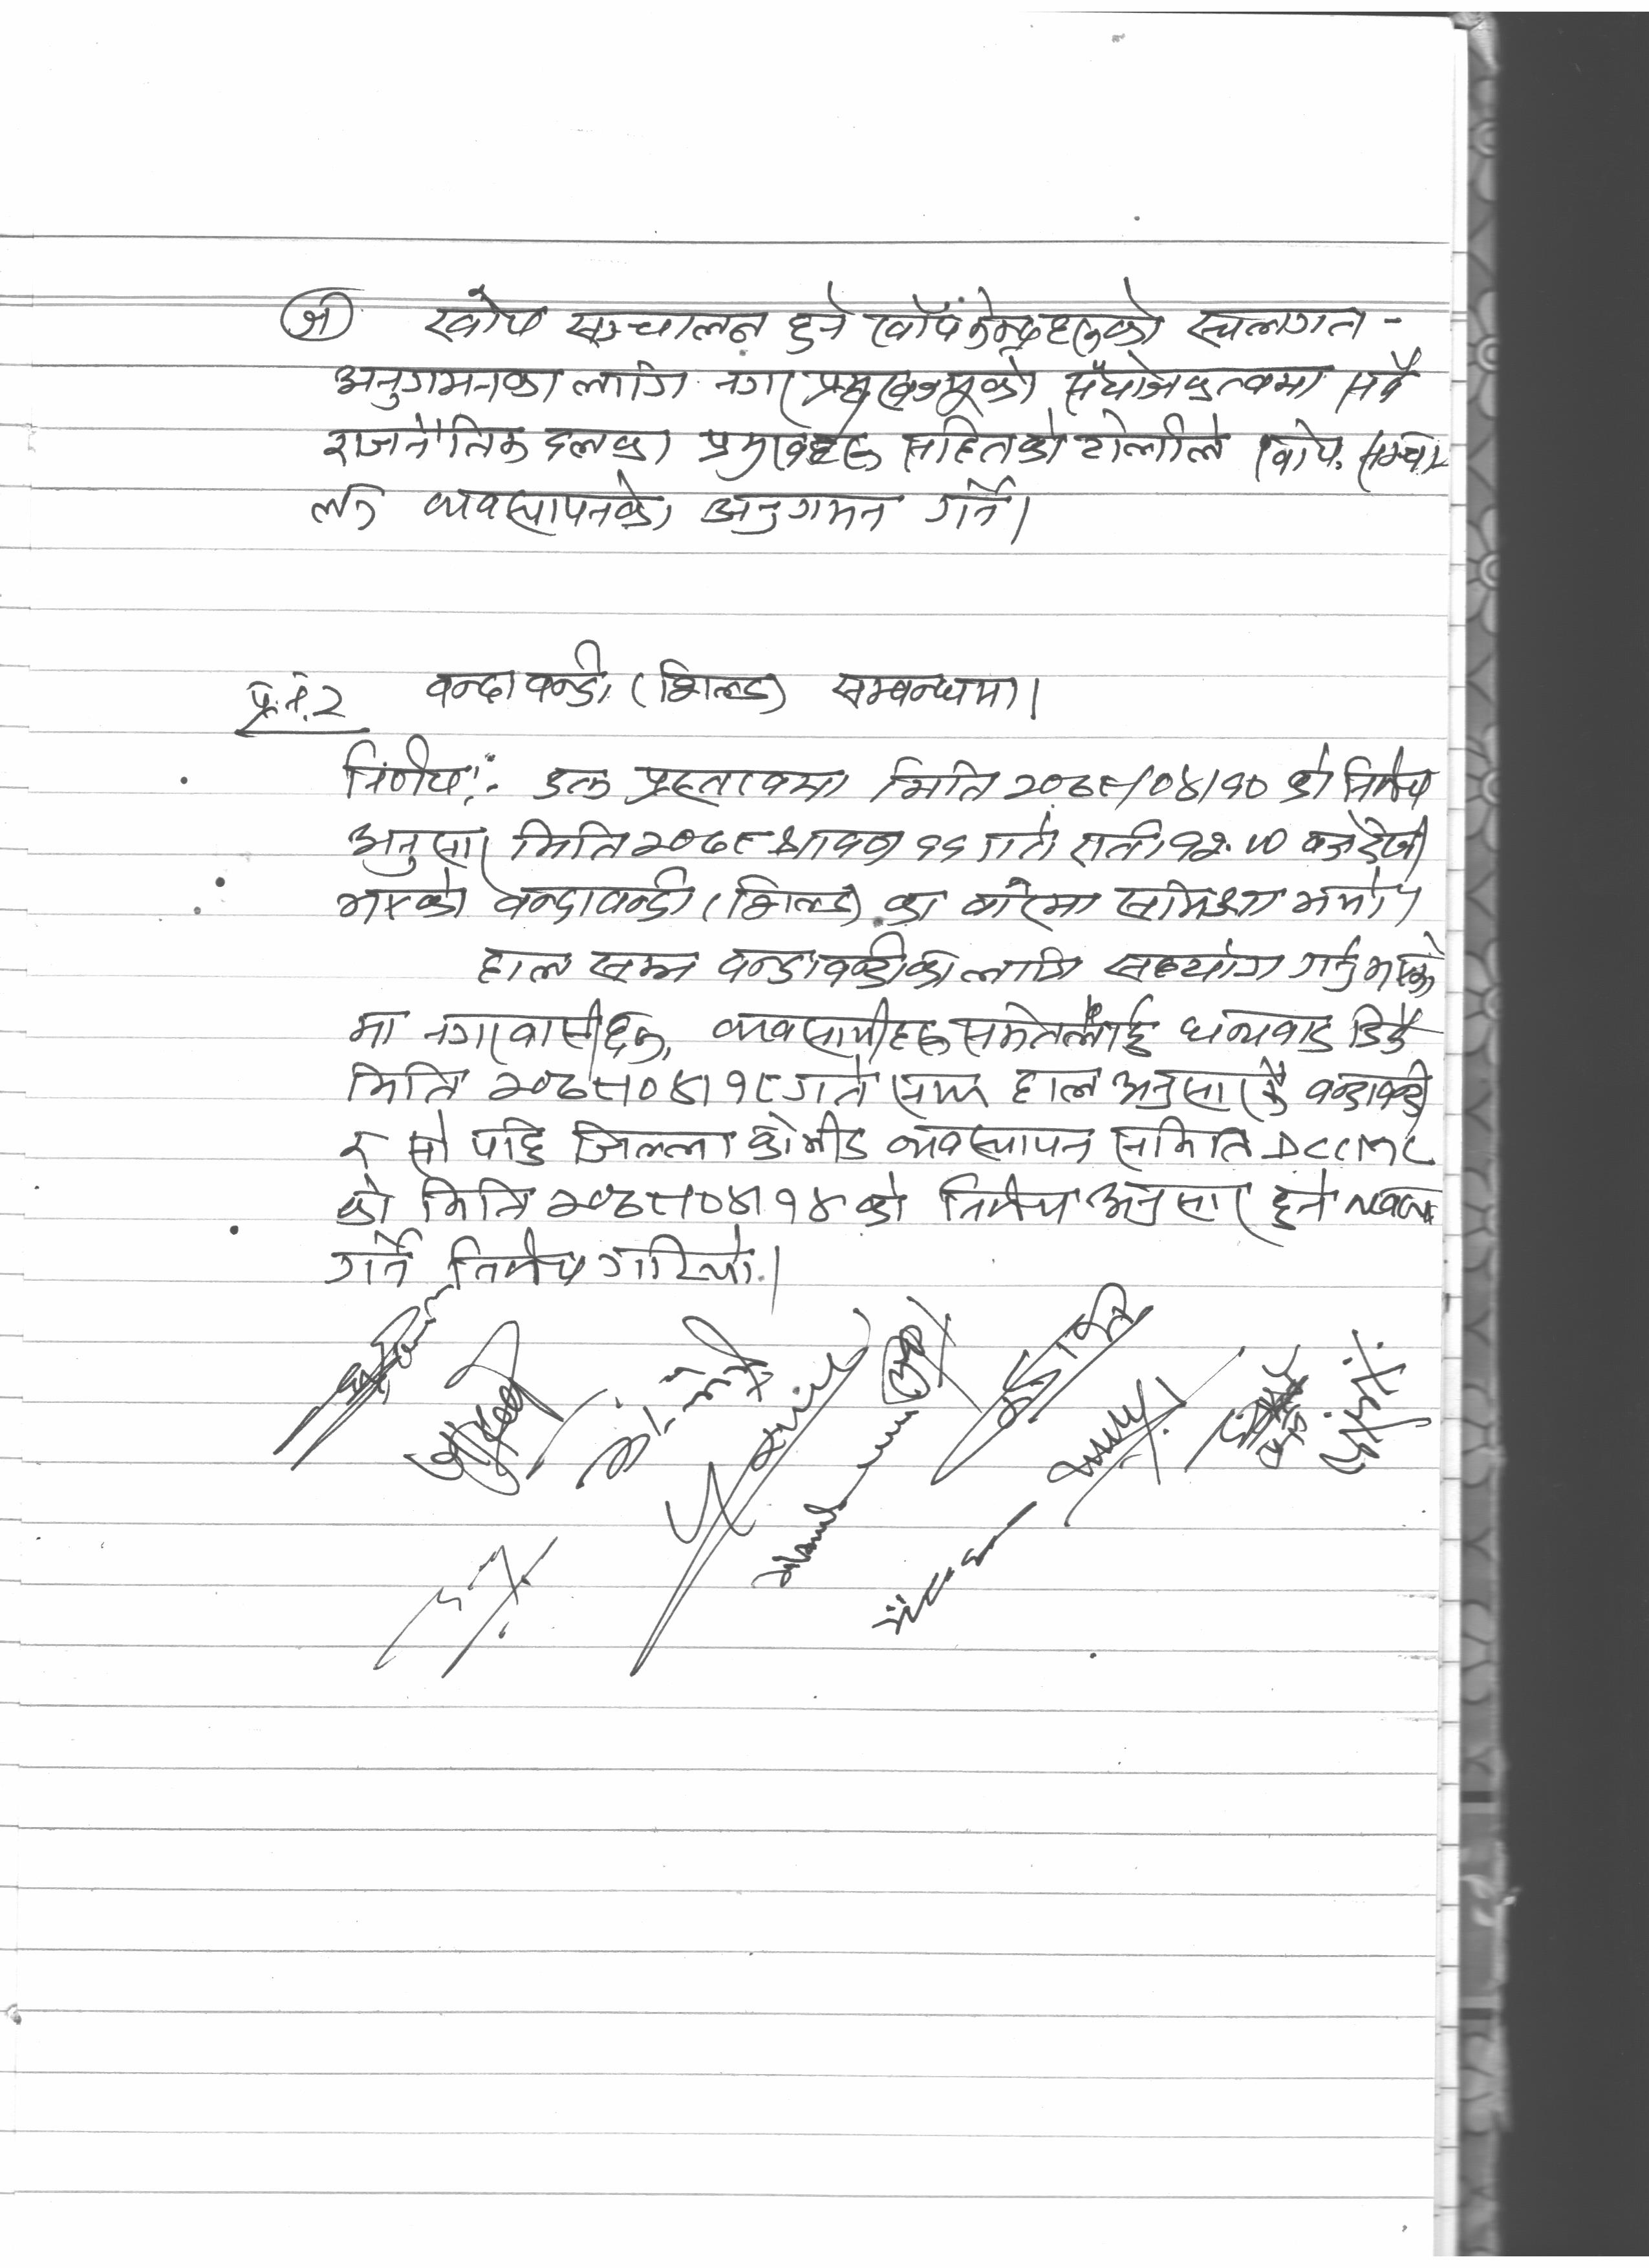 (ज) खोप सञ्चालन हुने खोप केन्द्रहरुको स्थलगत -
अनुगमनका लागि नगर प्रमुखज्यूको संयोजकत्वमा सबै
राजनैतिक दलका प्रमुखहरु सहितको टोलीले खोप सञ्चा-
लन व्यवस्थापनको अनुगमन गर्ने।
प्र.नं. २ बन्दाबन्दी (शिल्ड) सम्बन्धमा।
निर्णय:- उक्त प्रस्तावमा मिति २०७८/०४/१० को निर्णय
अनुसार मिति २०७८ श्रावण ११ गते राती १२:०० बजेदेखी
भएको बन्दाबन्दी (शिल्ड) का बारेमा समिक्षा भयो।
हाल सम्म बन्दाबन्दीको लागि सहयोग गर्नु भएको
मा नगरवासीहरु, व्यवसायीहरु समेतलाई धन्यवाद दिदै
मिति २०७८।०४।१८ गते सम्म हाल अनुसार नै बन्दाबन्दी
र सो पछि जिल्ला कोभीड व्यवस्थापन समिति DCCMC
को मिति २०७८।०४।१४ को निर्णय अनुसार हुने
गर्ने निर्णय गरियो।